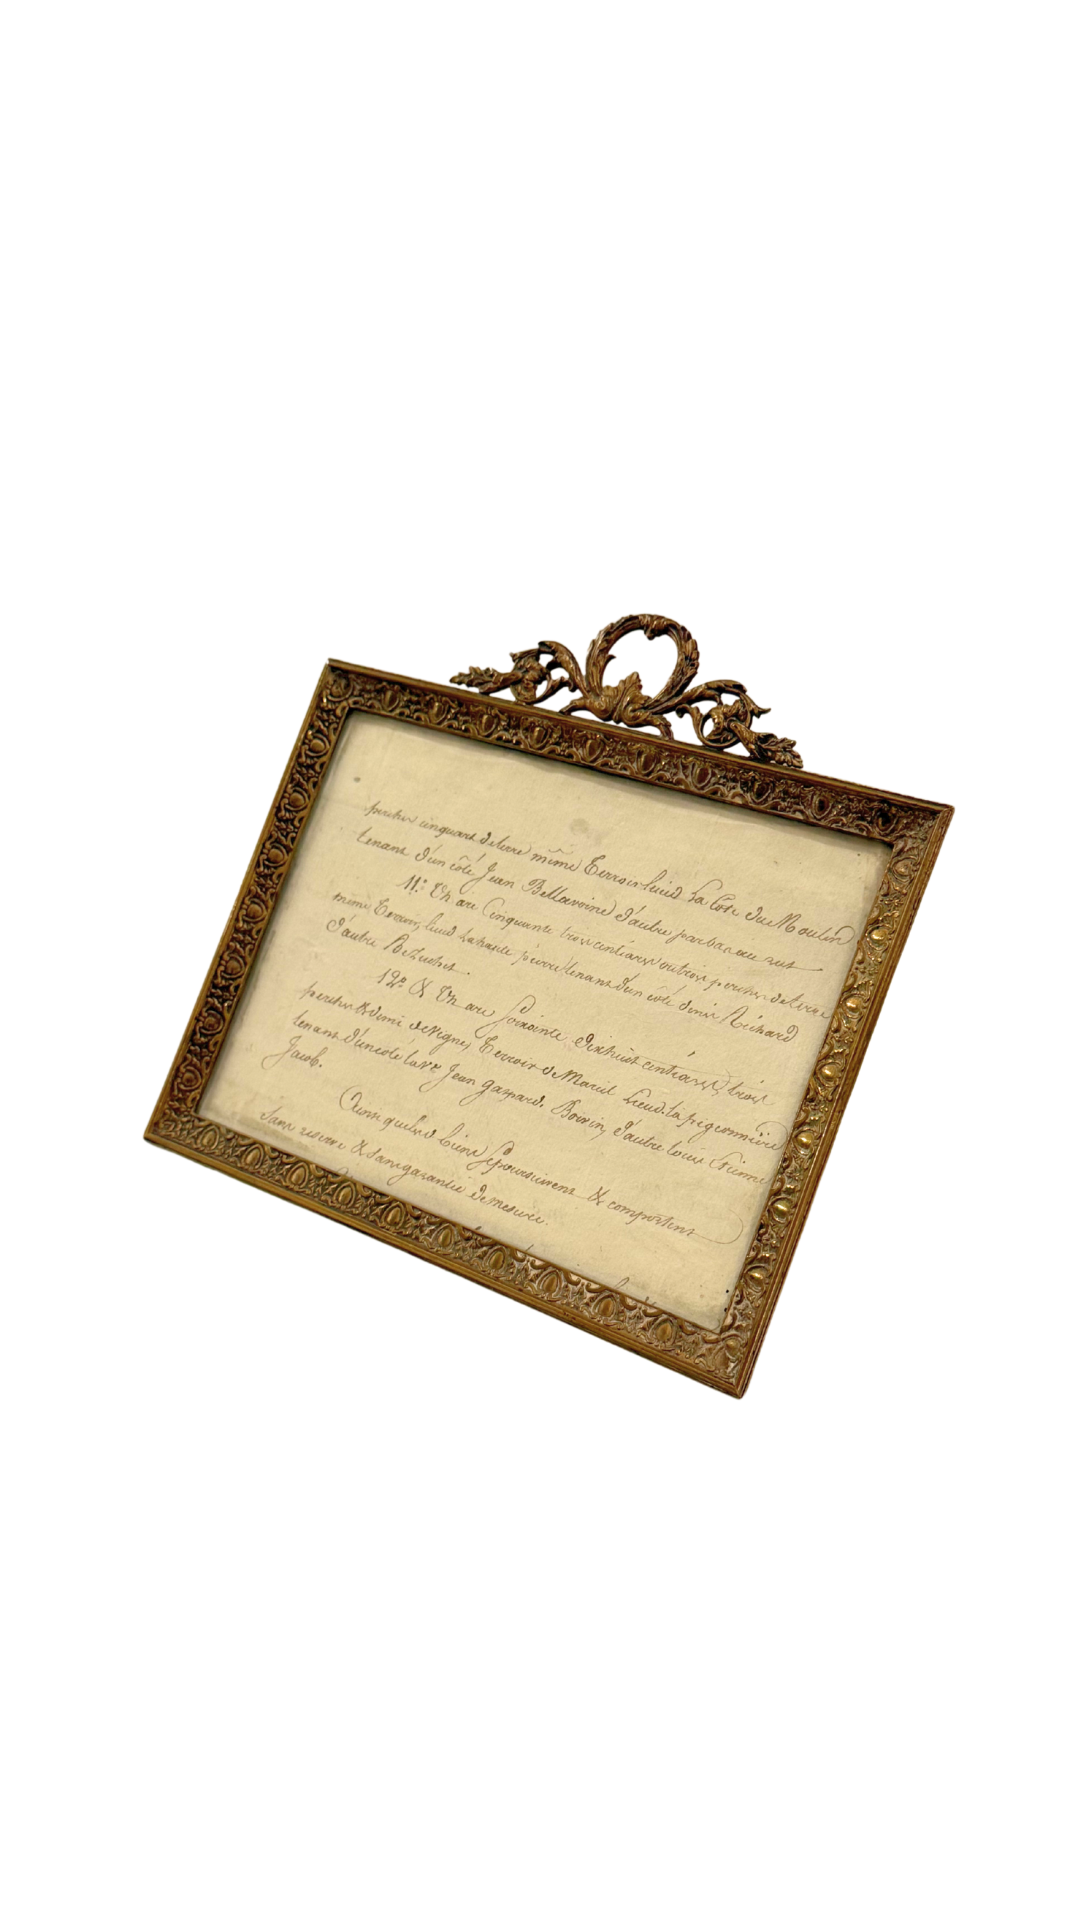 perches cinquant de terre même Terroir lieud La Cote du Moulin
tenant d'un côté Jean Bellavoine d'autre par bas au rut
11.° Un are Cinquante trois centiares ou trois perches de terre
même Terroir, lieud la haute pierre tenant d'un côté denis Richard
d'autre
12.° & Un are Soixante dix huit centiares, trois
perches & demi de vigne, Terroir de Mareil lieud. la pigeonniere
tenant d'un coté la Ve. Jean Gaspard. d'autre Louis Etienne
Jacob.
Ainsi que lesd. biens se poursuivent & comportent
Sans reserve & sans garantie de mesure.